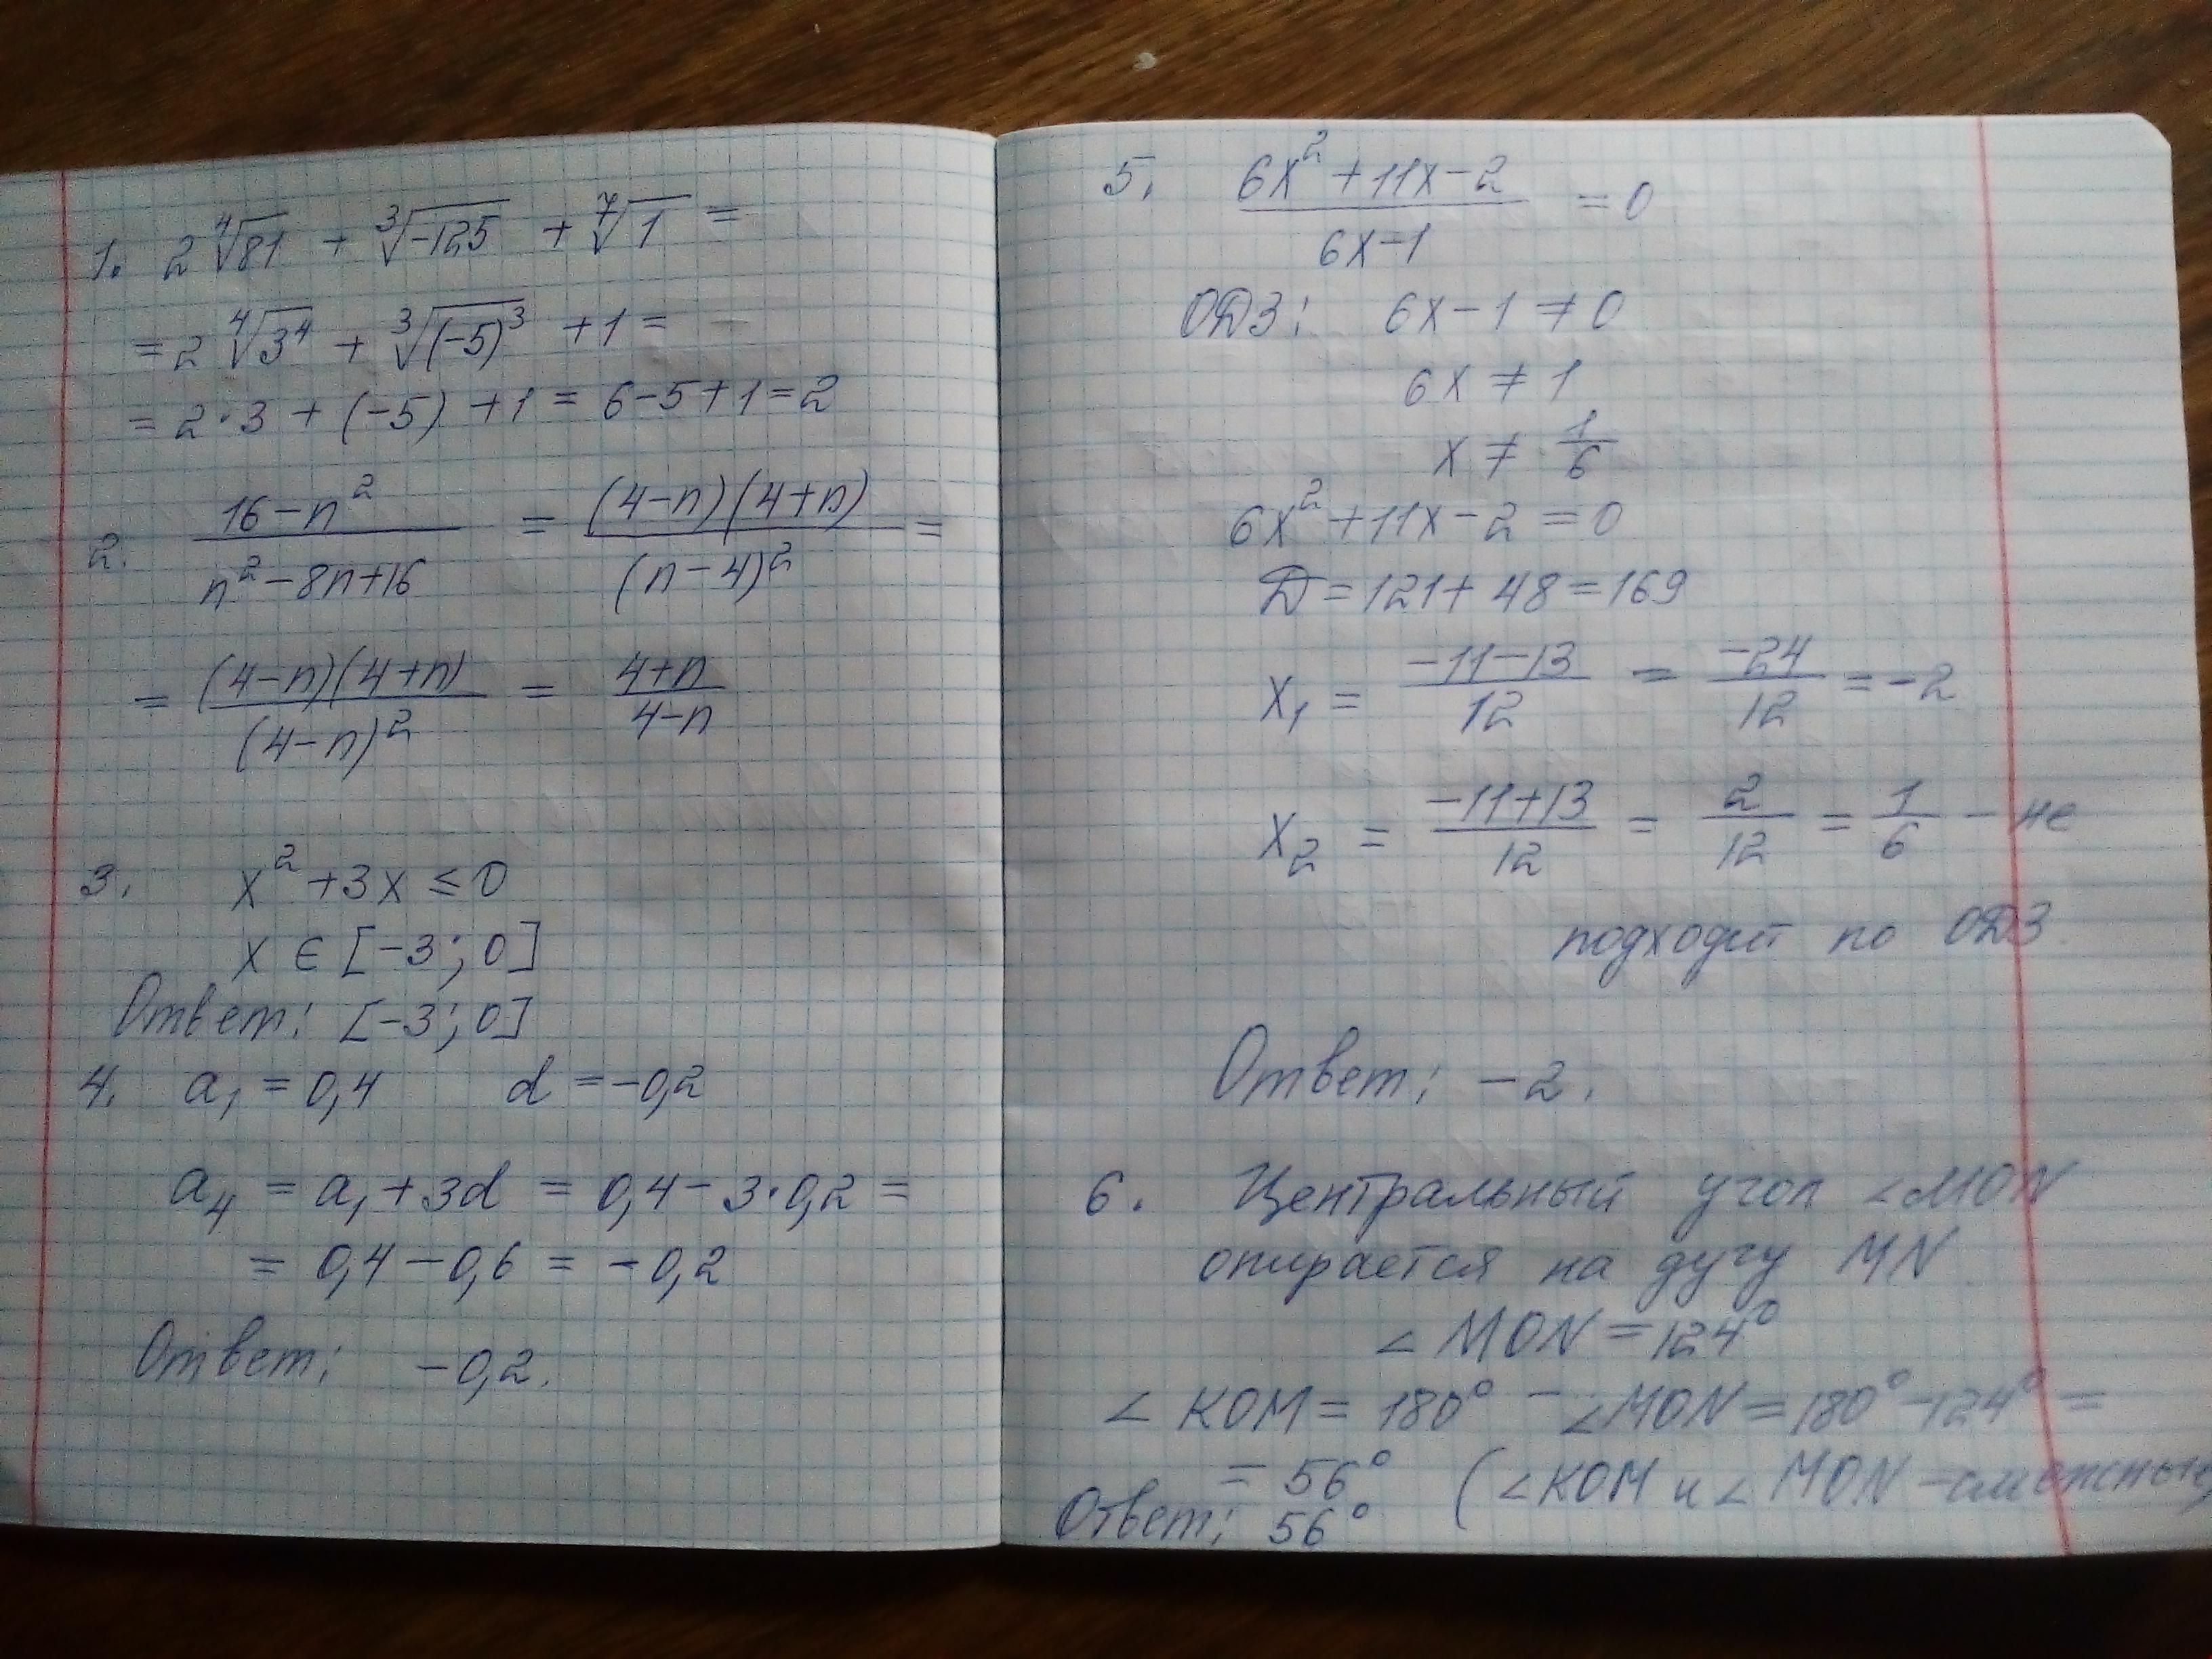 1. 2 ∜81 + ∛-125 + ⁷√1 =
= 2 ∜3⁴ + ∛(-5)³ + 1 =
= 2·3 + (-5) + 1 = 6-5+1=2
2. (16-n²)/(n²-8n+16) = ((4-n)(4+n))/((n-4)²) =
= ((4-n)(4+n))/((4-n)²) = (4+n)/(4-n)
3. x²+3x ≤ 0
x ∈ [-3; 0]
Ответ: [-3; 0]
4. a₁ = 0,4 d = -0,2
a₄ = a₁ + 3d = 0,4 - 3·0,2 =
= 0,4 - 0,6 = -0,2
Ответ: -0,2.
5. (6x²+11x-2)/(6x-1) = 0
ОДЗ: 6x-1 ≠ 0
6x ≠ 1
x ≠ 1/6
6x²+11x-2 = 0
Д = 121 + 48 = 169
x₁ = (-11-13)/12 = -24/12 = -2
x₂ = (-11+13)/12 = 2/12 = 1/6 - не
подходит по ОДЗ.
Ответ: -2.
6. Центральный угол ∠MON
опирается на дугу MN.
∠MON = 124°
∠KOM = 180° - ∠MON = 180° - 124° =
= 56° (∠KOM и ∠MON - смежные)
Ответ: 56°